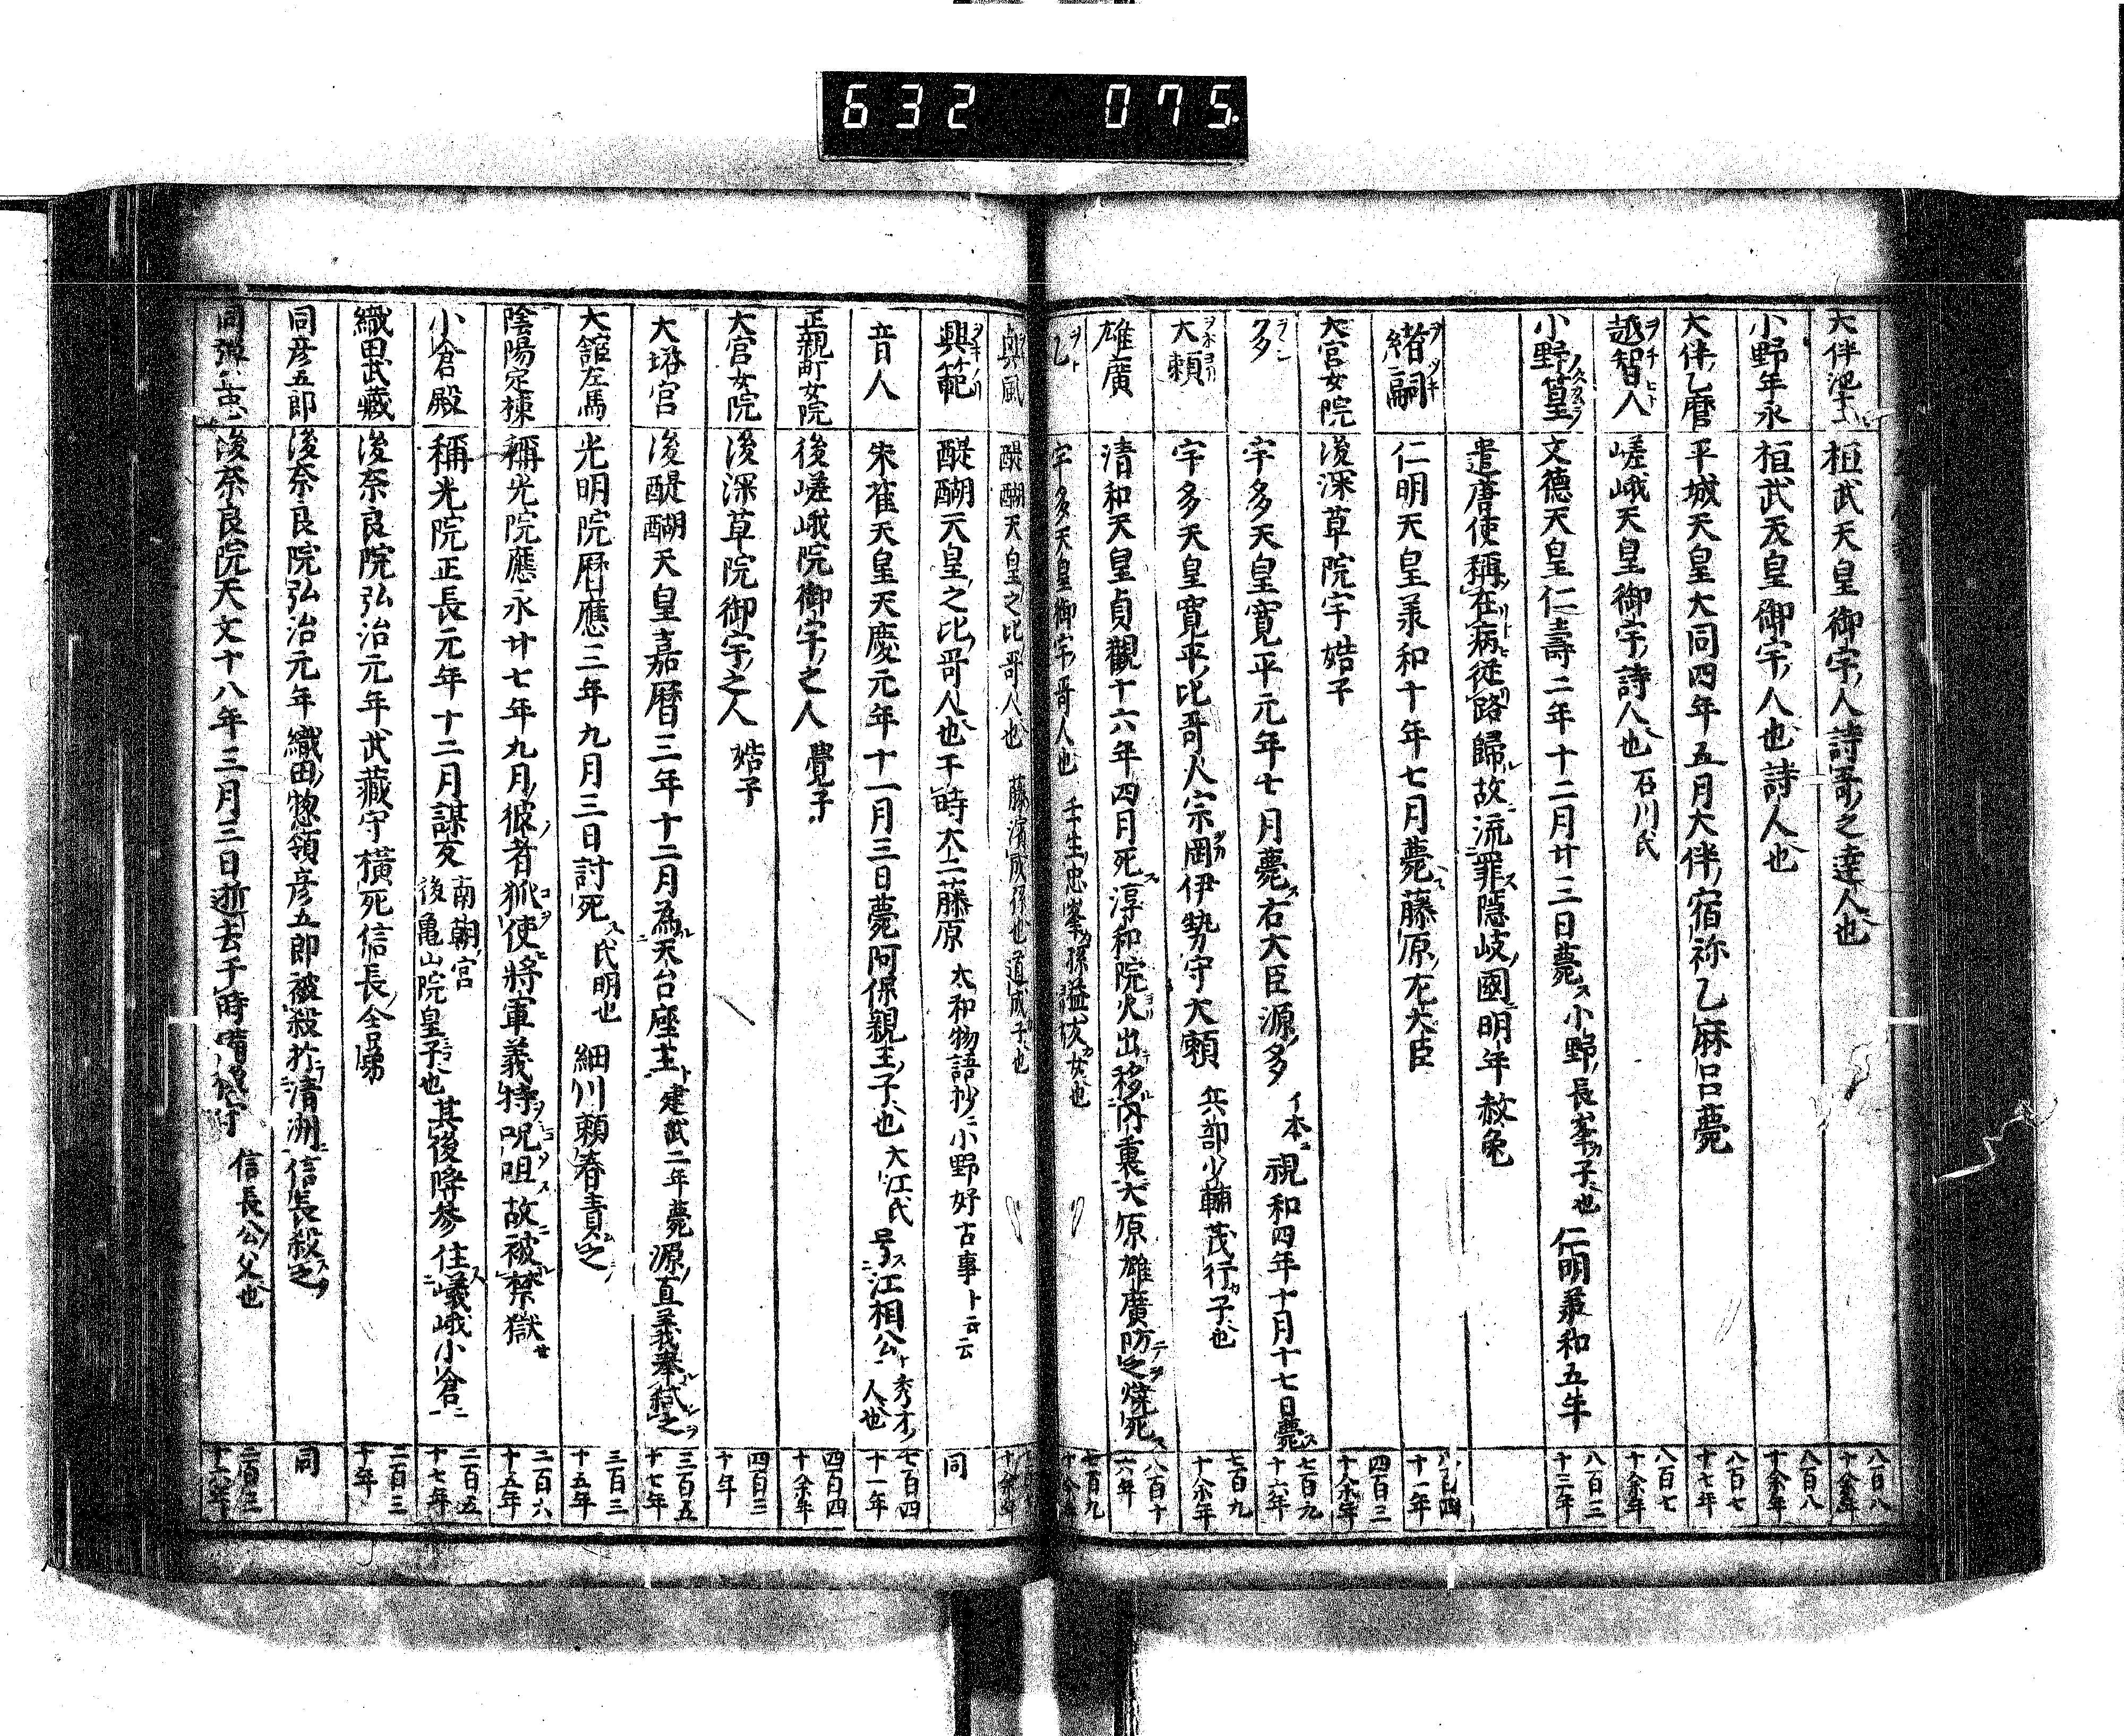 632 075
大伴池主 桓武天皇御宇ノ人詩哥ノ之達人也 八百八十余年
小野年永 桓武天皇御宇ノ人也詩人也 八百八十余年
大伴乙麿 平城天皇大同四年五月大伴ノ宿祢乙麻呂薨 八百七十七年
越智人 嵯峨天皇御宇ノ詩人也 石川氏 八百七十余年
小野篁 文德天皇仁壽二年十二月廿三日薨ス 小野ノ長峯カ子也 仁明兼和五年 八百三十三年
遣唐使稱在病從路歸故流罪ス隱岐ノ國明年赦免
緒嗣 仁明天皇承和十年七月薨ス藤原ノ左大臣 十一年
大宮女院 後深草院宇姞子 四百三十余年
多 宇多天皇寛平元年七月薨ス右大臣源ノ多 イ本ニ視和四年十月十七日薨ス 七百九十六年
大頼 宇多天皇寛平ノ比哥人宗岡伊勢守大頼 兵部少輔茂行カ子也 七百九十余年
雄廣 清和天皇貞觀十六年四月死ス淳和院火出移内裏大原雄廣防之燒死ス 八百十六年
乙 宇多天皇御宇ノ哥人也 壬生ノ忠峯カ孫 女也 七百九十余年
興風 醍醐天皇ノ之比ノ哥人也 藤濱成孫也道成子也
興範 醍醐天皇ノ之比ノ哥人也于時太二藤原 太和物語抄ニ小野好古事ト云云 同
音人 朱雀天皇天慶元年十一月三日薨阿保親王ノ子也 大江氏 号ス江相公ト秀才ノ人也 七百四十一年
正親町女院 後嵯峨院御宇ノ之人 覺子 四百四十余年
大宮女院 後深草院御宇ノ之人 姞子 四百三十年
大塔宮 後醍醐天皇嘉曆三年十二月為ル天台座主ト 建武二年薨 源ノ直義奉弑之 三百五十七年
大舘左馬 光明院曆應三年九月三日討死ス 氏明也 細川ノ頼春責之 三百三十五年
陰陽定棟 稱光院應永廿七年九月ノ彼者狐使將軍義持呪咀故被禁獄セ 二百六十五年
小倉殿 稱光院正長元年十二月謀反 南朝ノ宮後亀山院皇子也 其後降参住ス嵯峨小倉ニ 二百五十七年
織田武藏 後奈良院弘治元年武藏守横死信長ノ舎弟 二百三十年
同彦五郎 後奈良院弘治元年織田ノ惣領彦五郎被殺於清洲ニ信長殺之 同
同彈忠 後奈良院天文十八年三月三日逝去于時 信長公ノ父也 二百三十六年